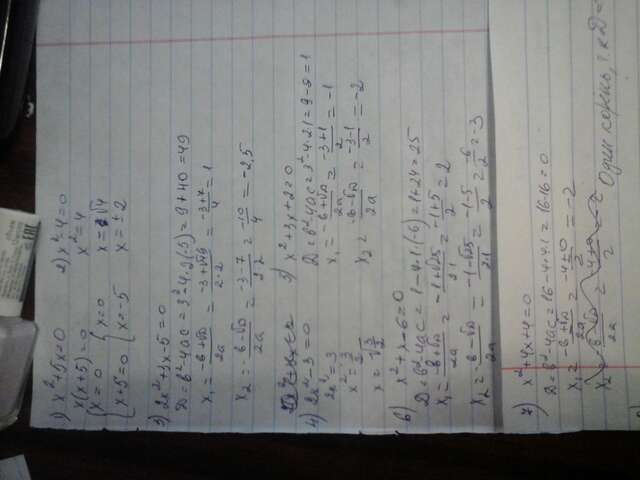 1) x²+5x=0
x(x+5)=0
{x=0 {x=0
{x-5=0 {x=-5
2) x²-4=0
x²=4
x=±√4
x=±2
3) 2x²+3x-5=0
D=b²-4ac=3²-4·2(-5)=9+40=49
x₁=(-b+√D)/2a=(-3+√49)/2·2=(-3+7)/4=1
x₂=(-b-√D)/2a=(-3-7)/2·2=-10/4=-2,5
4) 2x²-3=0
2x²=3
x²=3/2
x=√3/2
5) x²+3x+2=0
D=b²-4ac=3²-4·2·1=9-8=1
x₁=(-b+√D)/2a=(-3+1)/2=-1
x₂=(-b-√D)/2a=(-3-1)/2=-2
6) x²+x-6=0
D=b²-4ac=1-4·1·(-6)=1+24=25
x₁=(-b+√D)/2a=(-1+√25)/2·1=(-1+5)/2=2
x₂=(-b-√D)/2a=(-1-√25)/2·1=(-1-5)/2=-6/2=-3
7) x²+4x+4=0
D=b²-4ac=16-4·4·1=16-16=0
x₁=(-b+√D)/2a=(-4±0)/2=-2
Один корень, т.к D=